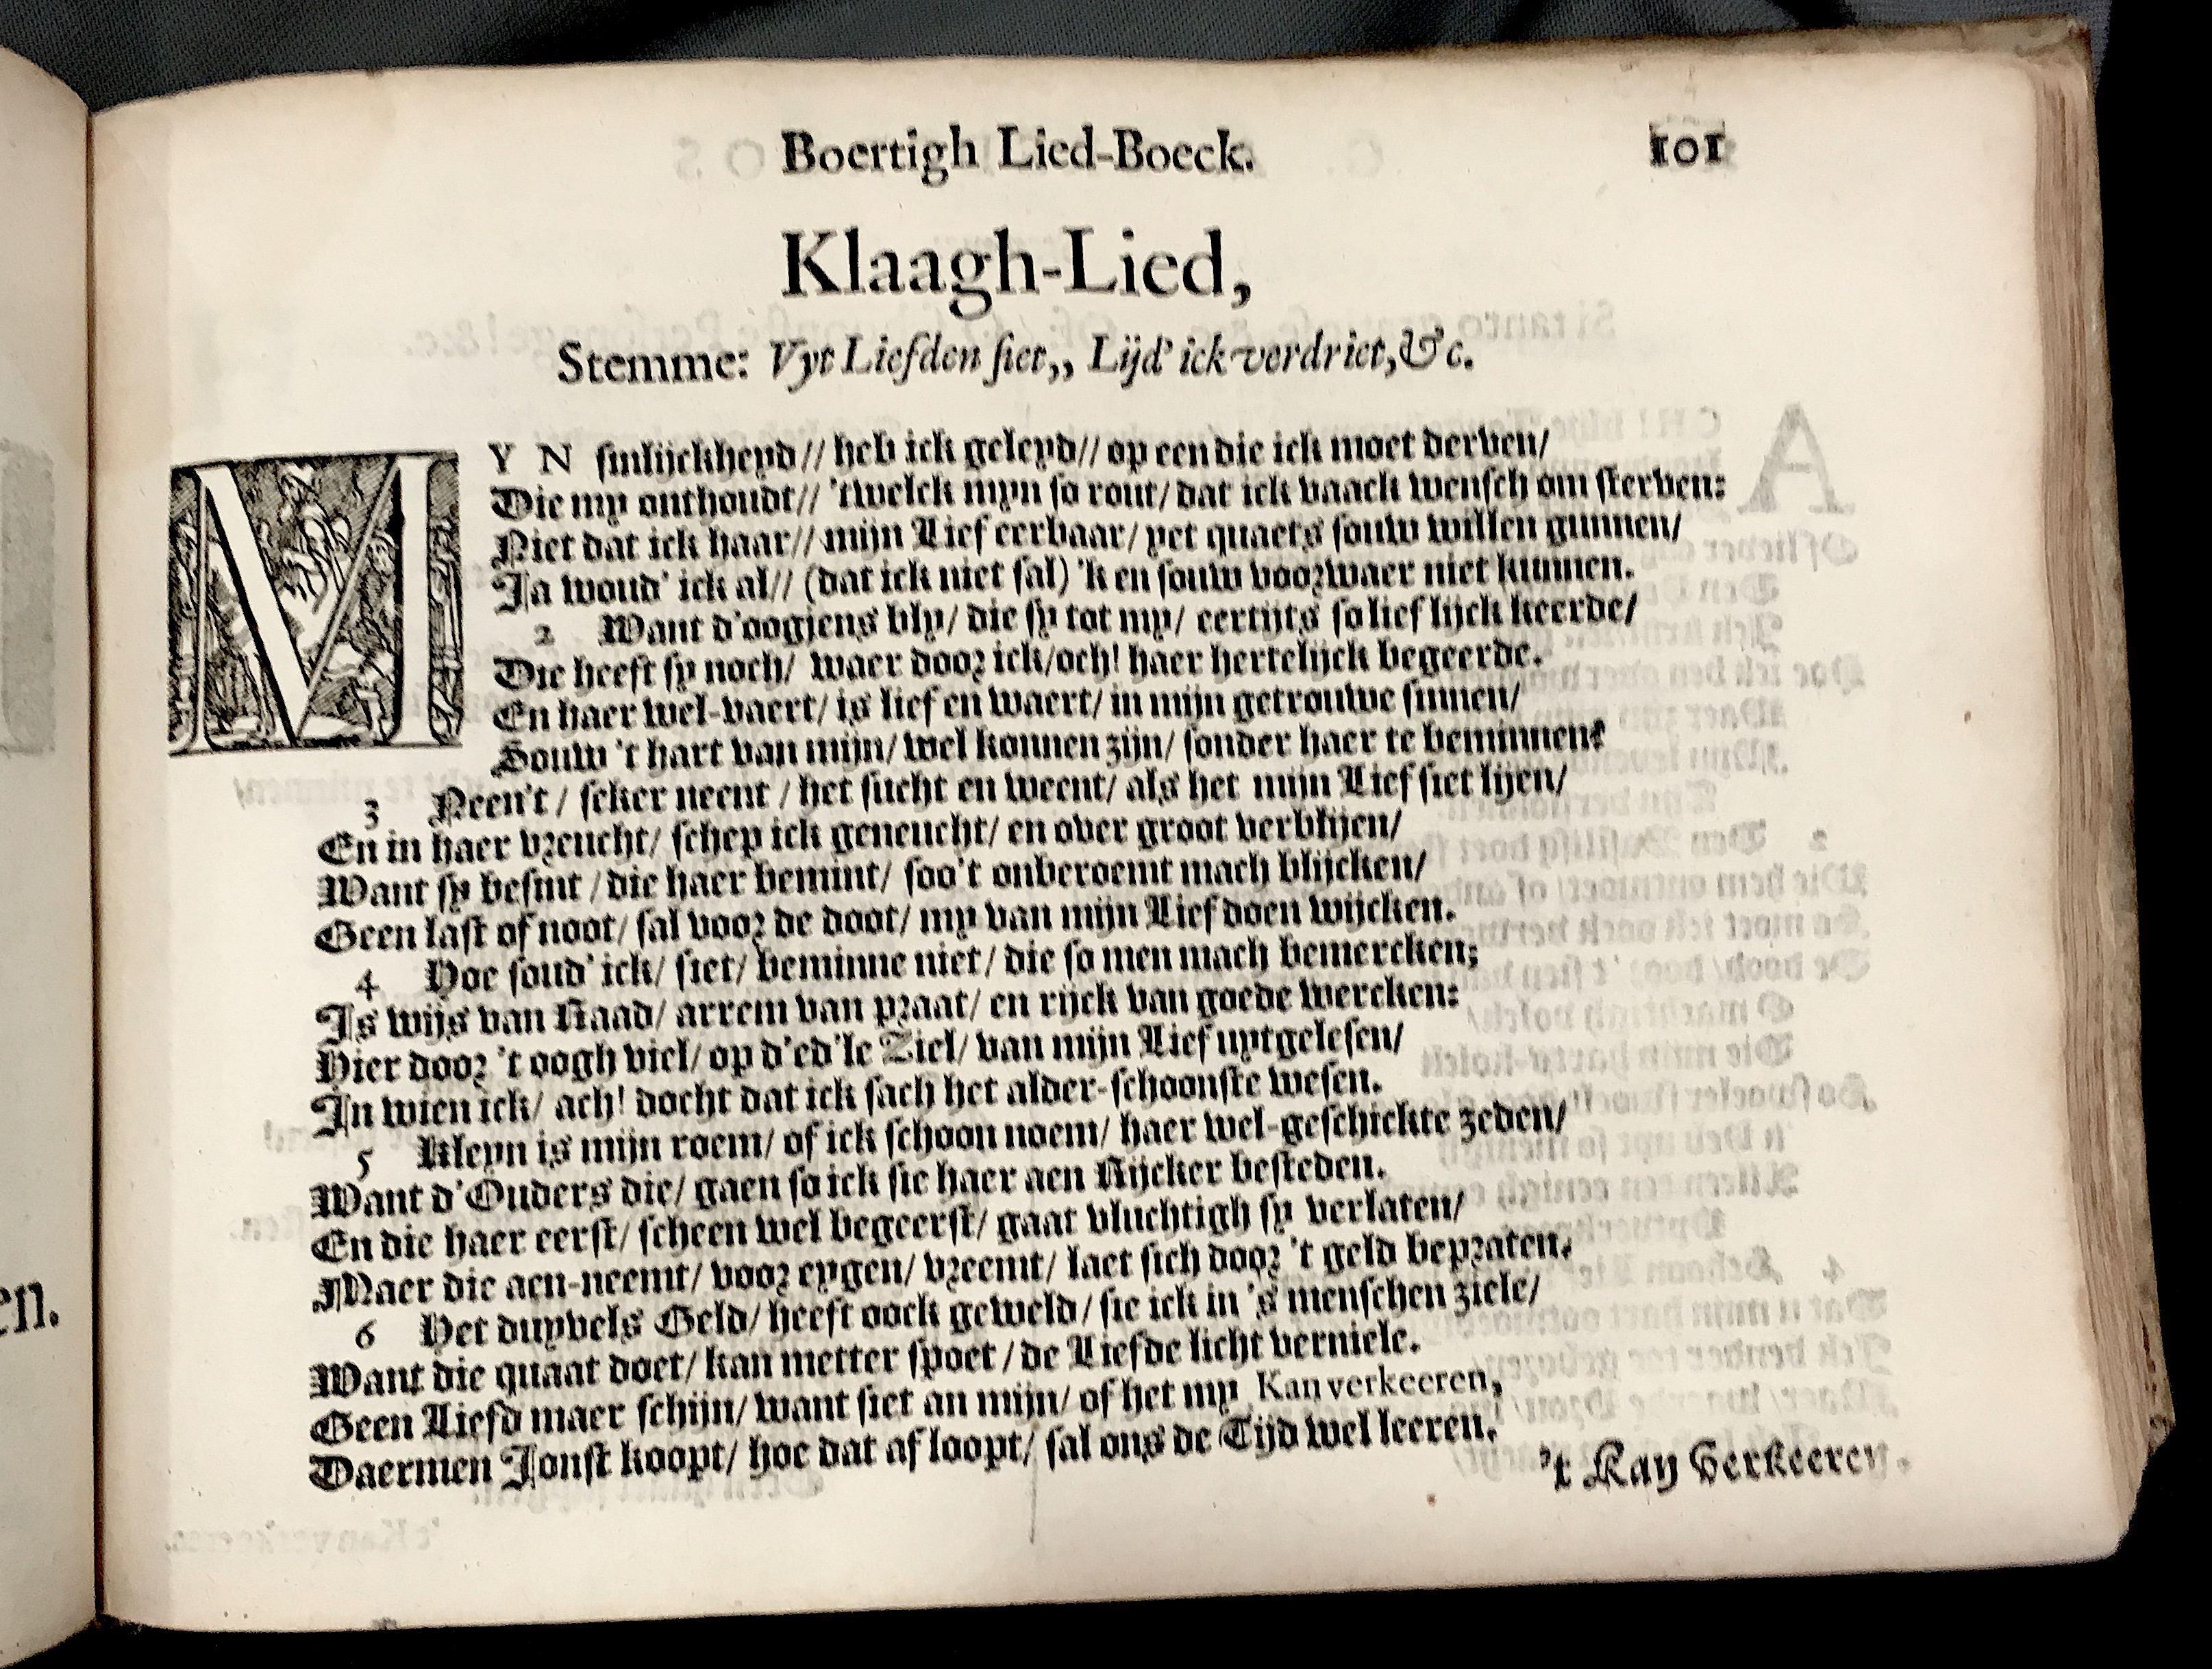 Boertigh Lied-Boeck. 101
Klaagh-Lied,
Stemme: Vyt Liefden siet,, Lijd' ick verdriet, &c.
MYN sinlijckheyd // heb ick geleyd // op een die ick moet derven /
Die my onthoudt // 'twelck myn so rout / dat ick vaack wensch om sterven:
Niet dat ick haar // mijn Lief eerbaar / yet quaets souw willen gunnen /
Ja woud' ick al // (dat ick niet sal) 'k en souw voorwaer niet kunnen.
2 Want d'oogjens bly / die sy tot my / eertijts so lieflijck keerde /
Die heeft sy noch / waer door ick / och! haer hertelijck begeerde.
En haer wel-vaert / is lief en waert / in mijn getrouwe sinnen /
Souw 't hart van mijn / wel konnen zijn / sonder haer te beminnen?
3 Neen't / seker neent / het sucht en weent / als het mijn Lief siet lijen /
En in haer vreucht / schep ick geneucht / en over groot verblijen /
Want sy besint / die haer bemint / soo't onberoemt mach blijcken /
Geen last of noot / sal voor de doot / my van mijn Lief doen wijcken.
4 Hoe soud' ick / siet / beminne niet / die so men mach bemercken;
Is wijs van Raad / arrem van praat / en rijck van goede wercken:
Hier door 't oogh viel / op d'ed'le Ziel / van mijn Lief uytgelesen /
In wien ick / ach! docht dat ick sach het alder-schoonste wesen.
5 Kleyn is mijn roem / of ick schoon noem / haer wel-geschickte zeden /
Want d'Ouders die / gaen so ick sie haer aen Rijcker besteden.
En die haer eerst / scheen wel begeerst / gaat vluchtigh sy verlaten /
Maer die aen-neemt / voor eygen / vreemt / laet sich door 't geld bepraten.
6 Het duyvels Geld / heeft oock geweld / sie ick in 's menschen ziele /
Want die quaat doet / kan metter spoet / de Liefde licht verniele.
Geen Liefd maer schijn / want siet an mijn / of het my Kan verkeeren,
Daermen Jonst koopt / hoe dat af loopt / sal ons de Tijd wel leeren.
't Kan verkeeren.
en.